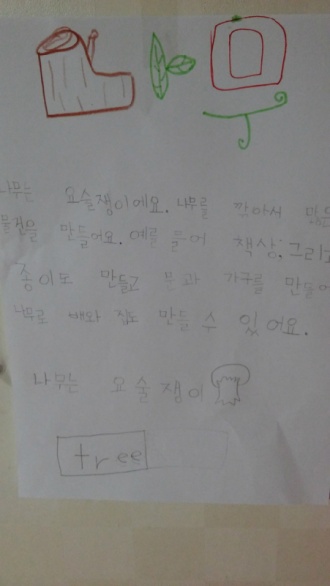 나무
나무는 요술쟁이에요. 나무를 깍아서 많은
물건을 만들어요. 예를 들어 책상. 그리고
종이도 만들고 문과 가구를 만들어
나무로 배와 집도 만들 수 있어요.
나무는 요술쟁이
tree